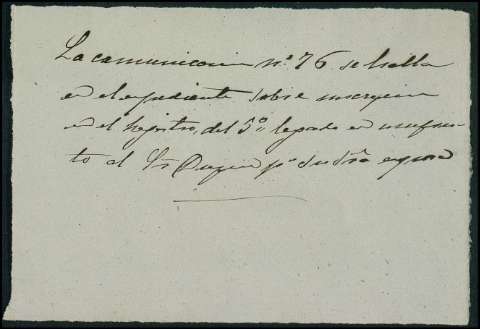 La comunicacion nº 76 se halla
en el expediente sobre inscripcion
en el Registro, del 5º legado en usufruc-
to al Sr Duque pr su Sra esposa